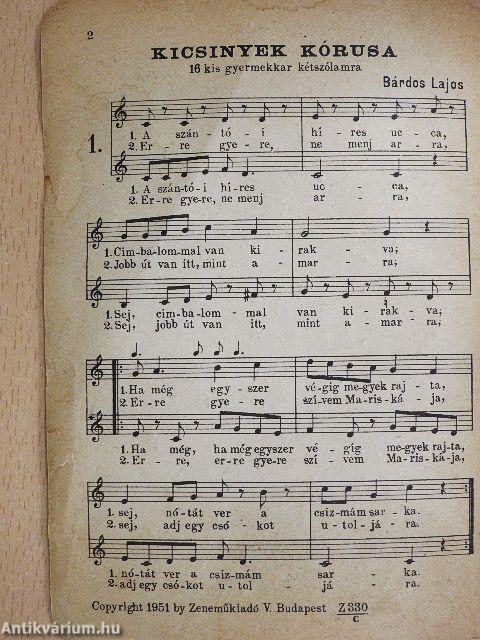 2
KICSINYEK KÓRUSA
16 kis gyermekkar kétszólamra
Bárdos Lajos
1.
1. A szán-tó-i hí-res uc-ca,
2. Er-re gye-re, ne menj ar-ra,
1. A szán-tó-i híres uc-ca,
2. Er-re gye-re, ne menj ar-ra,
1. Cim-ba-lom-mal van ki-rak-va;
2. Jobb út van itt, mint a-mar-ra;
1. Sej, cim-ba-lom-mal van ki-rak-va;
2. Sej, jobb út van itt, mint a-mar-ra;
1. Ha még egy-szer végig me-gyek raj-ta,
2. Er-re gye-re szí-vem Ma-ris-ká-ja,
1. Ha még, ha még egyszer vé-gig megyek rajta,
2. Er-re, er-re gye-re szí-vem Ma-ris-ká-ja,
1. sej, nó-tát ver a csiz-mám sar-ka.
2. sej, adj egy csó-kot u-tol-já-ra.
1. nó-tát ver a csiz-mám sar-ka.
2. adj egy csó-kot u-tol já-ra.
Copyright 1951 by Zeneműkiadó V. Budapest Z 330
c
Antikvárium.hu